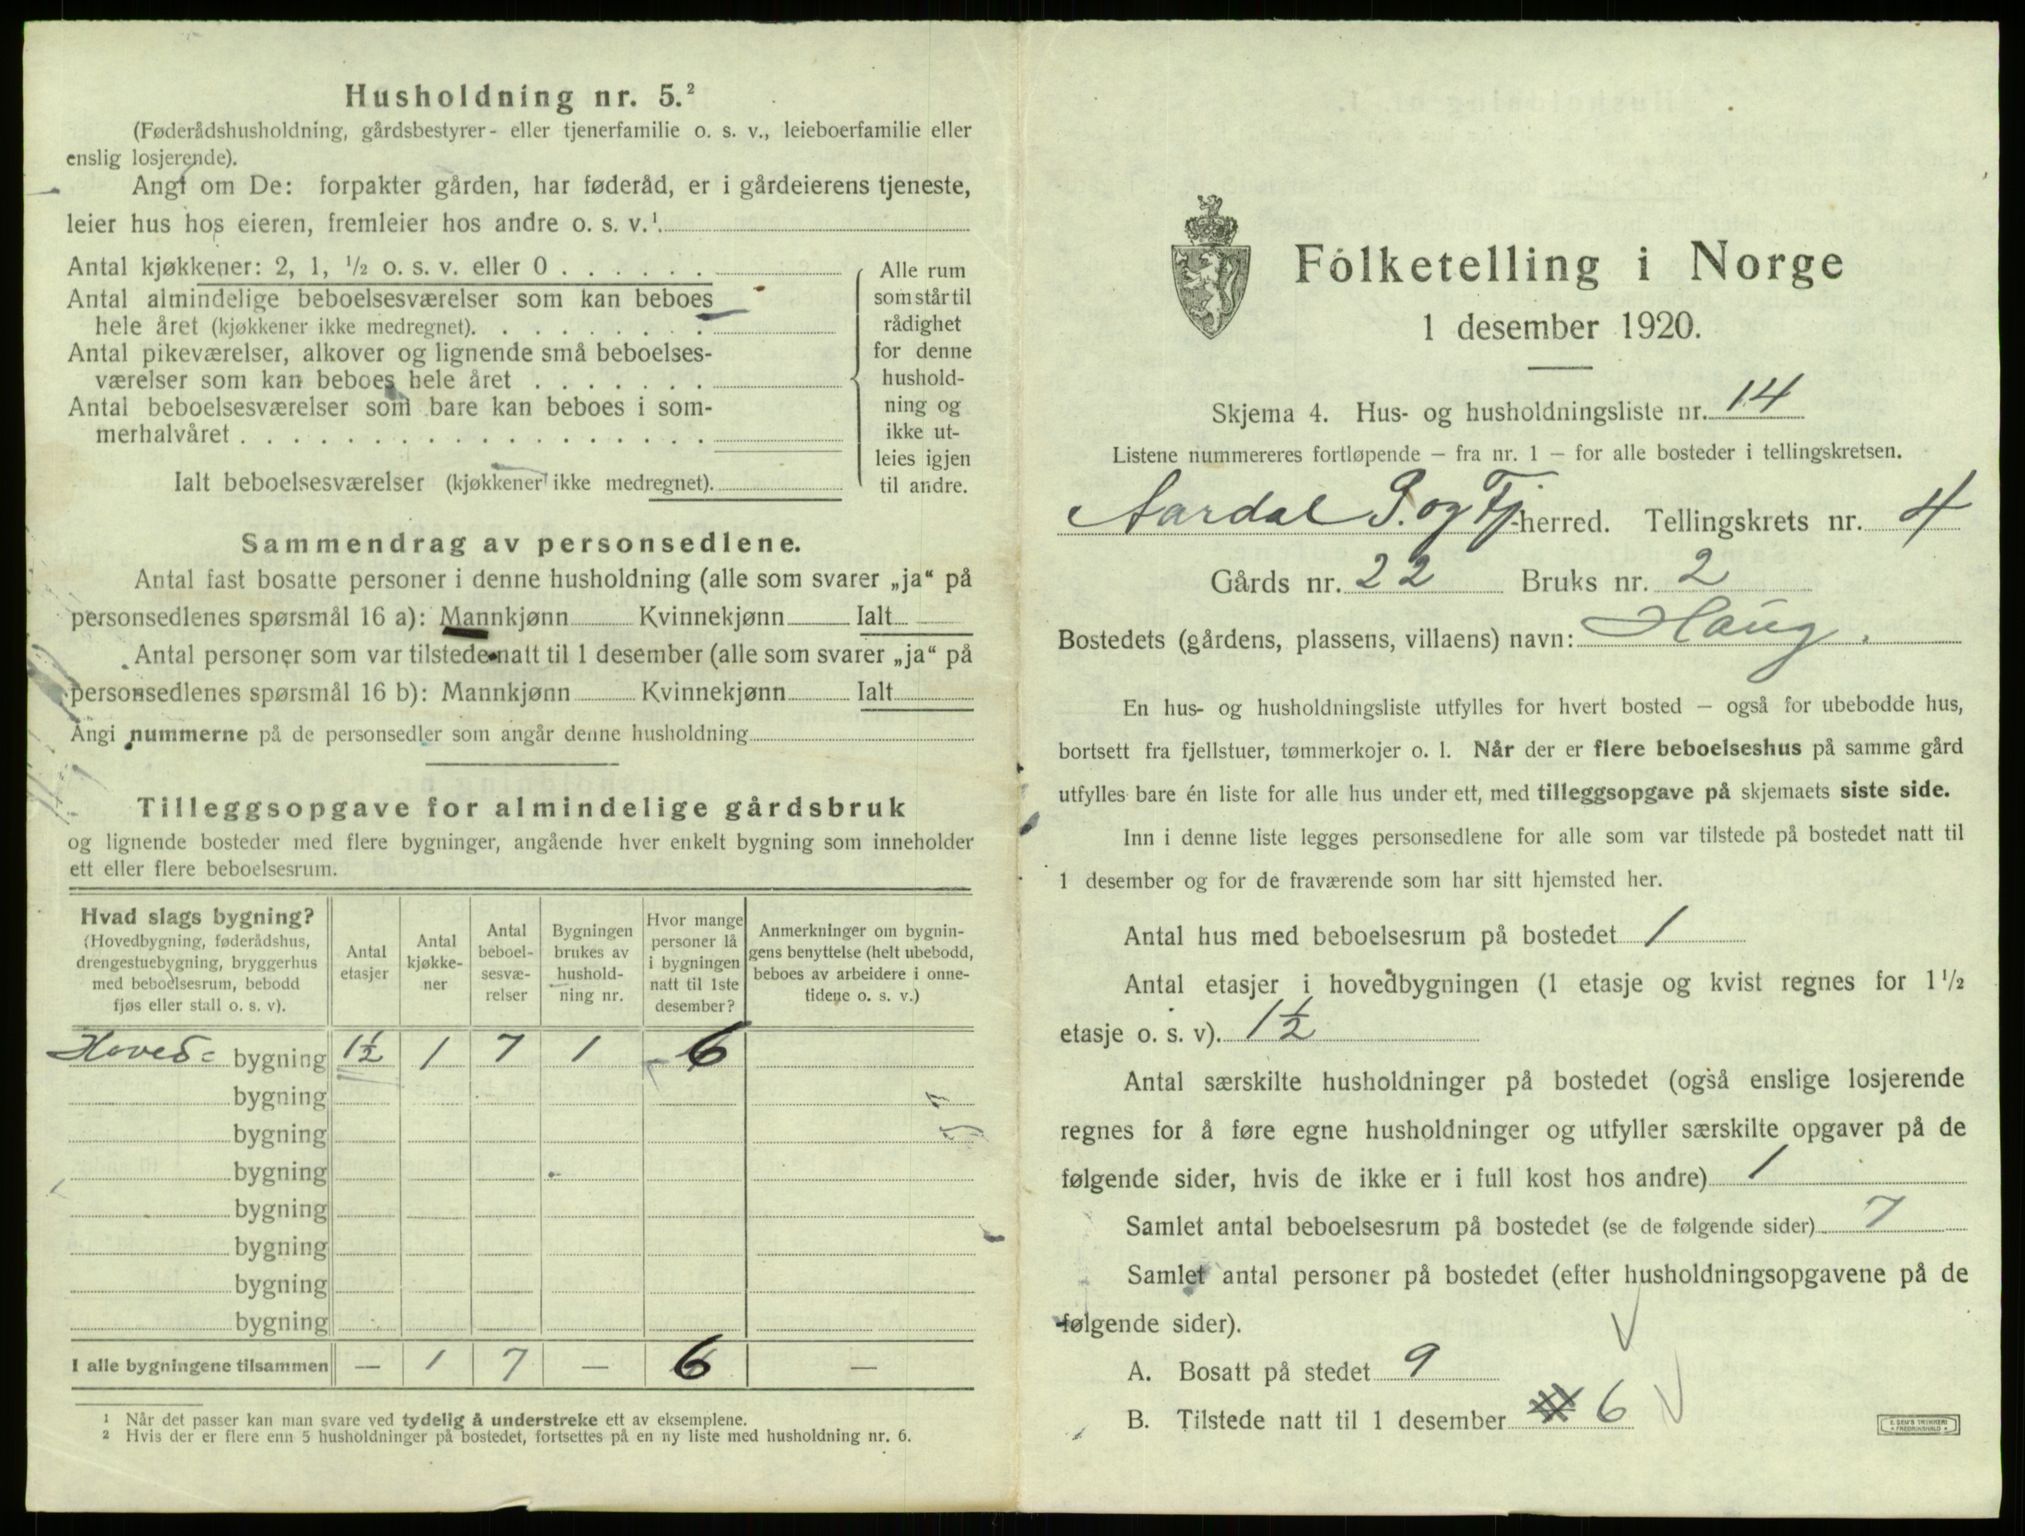 Husholdning nr. 5.²
(Føderådshusholdning, gårdsbestyrer- eller tjenerfamilie o. s. v., leieboerfamilie eller
enslig losjerende).
Angi om De: forpakter gården, har føderåd, er i gårdeierens tjeneste,
leier hus hos eieren, fremleier hos andre o. s. v.¹.
Antal kjøkkener: 2, 1, ½ o. s. v. eller 0 . . . . . .
Antal almindelige beboelsesværelser som kan beboes
hele året (kjøkkener ikke medregnet). . . . . . . . .
Antal pikeværelser, alkover og lignende små beboelses-
værelser som kan beboes hele året . . . . . . .
Antal beboelsesværelser som bare kan beboes i som-
merhalvåret . . . . . . . . . . . . . . . . . .
Ialt beboelsesværelser (kjøkkener ikke medregnet).
Alle rum
som står til
rådighet
for denne
hushold-
ning og
ikke ut-
leies igjen
til andre.
Sammendrag av personsedlene.
Antal fast bosatte personer i denne husholdning (alle som svarer „ja“ på
personsedlenes spørsmål 16 a): Mannkjønn Kvinnekjønn Ialt
Antal personer som var tilstede natt til 1 desember (alle som svarer „ja“ på
personsedlenes spørsmål 16 b): Mannkjønn Kvinnekjønn Ialt
Angi nummerne på de personsedler som angår denne husholdning
Tilleggsopgave for almindelige gårdsbruk
og lignende bosteder med flere bygninger, angående hver enkelt bygning som inneholder
ett eller flere beboelsesrum.
Hvad slags bygning?
(Hovedbygning, føderådshus,
drengestuebygning, bryggerhus
med beboelsesrum, bebodd
fjøs eller stall o. s. v).
Antal
etasjer
Antal
kjøkke-
ner
Antal
beboel-
sesvæ-
relser
Bygningen
brukes av
hushold-
ning nr.
Hvor mange
personer lå
i bygningen
natt til 1ste
desember?
Anmerkninger om bygnin-
gens benyttelse (helt ubebodd,
beboes av arbeidere i onne-
tidene o. s. v.)
Hoved= bygning 1½ 1 7 1 6
bygning
bygning
bygning
bygning
bygning
bygning
bygning
I alle bygningene tilsammen — 1 7 — 6 —
1 Når det passer kan man svare ved tydelig å understreke ett av eksemplene.
2 Hvis der er flere enn 5 husholdninger på bostedet, fortsettes på en ny liste med husholdning nr. 6.
Folketelling i Norge
1 desember 1920.
Skjema 4. Hus- og husholdningsliste nr. 14
Listene nummereres fortløpende – fra nr. 1 – for alle bosteder i tellingskretsen.
Aardal S. og Fj. herred. Tellingskrets nr. 4
Gårds nr. 22 Bruks nr. 2
Bostedets (gårdens, plassens, villaens) navn: Haug.
En hus- og husholdningsliste utfylles for hvert bosted – også for ubebodde hus,
bortsett fra fjellstuer, tømmerkojer o. l. Når der er flere beboelseshus på samme gård
utfylles bare én liste for alle hus under ett, med tilleggsopgave på skjemaets siste side.
Inn i denne liste legges personsedlene for alle som var tilstede på bostedet natt til
1 desember og for de fraværende som har sitt hjemsted her.
Antal hus med beboelsesrum på bostedet 1
Antal etasjer i hovedbygningen (1 etasje og kvist regnes for 1½
etasje o. s. v). 1½
Antal særskilte husholdninger på bostedet (også enslige losjerende
regnes for å føre egne husholdninger og utfyller særskilte opgaver på de
følgende sider, hvis de ikke er i full kost hos andre) 1
Samlet antal beboelsesrum på bostedet (se de følgende sider) 7
Samlet antal personer på bostedet (efter husholdningsopgavene på de
følgende sider).
A. Bosatt på stedet 9
B. Tilstede natt til 1 desember 6